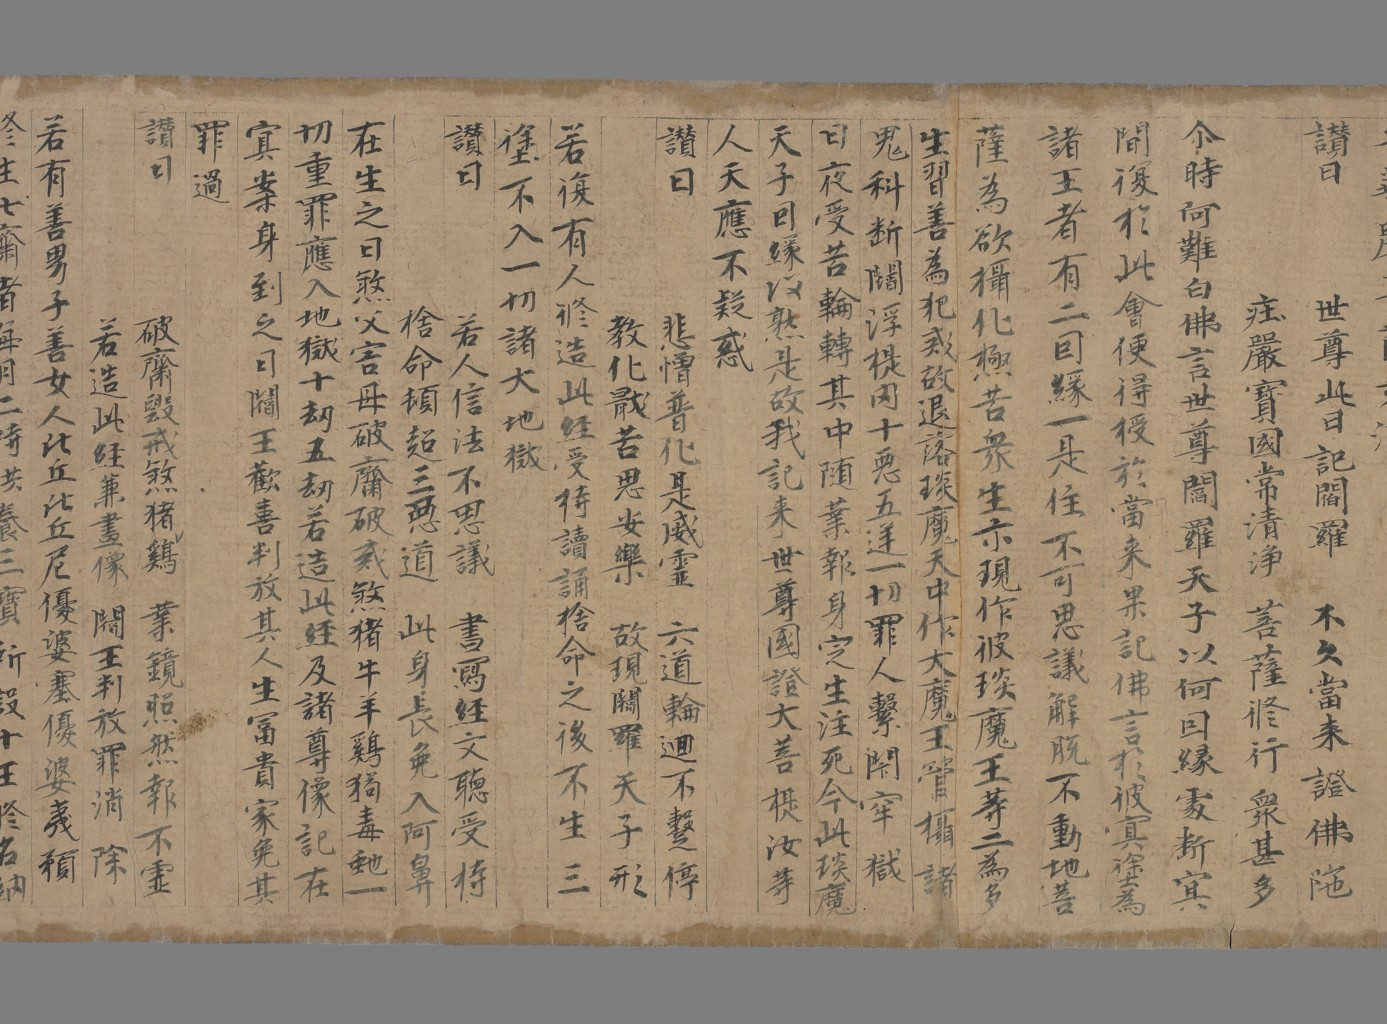 讃曰　世尊此日記閻羅　不久當来證佛陁
疰嚴寳國常清淨　菩薩修行衆甚多
尒時阿難白佛言世尊閻羅天子以何回緣處断㝠
間復扵此會便得授扵當来果記佛言扵彼㝠途為
諸王者有二回緣一是住不可思議解脱不動地菩
薩為欲攝化極苦衆生示現作彼琰魔王䓁二為多
生習善為犯戒故退落琰魔天中作大魔王管攝諸
鬼科断閻浮提内十惡五逆一切罪人繫閇牢獄
日夜受苦輪轉其中随業報身定生注死今此琰魔
天子曰緣以熟是故我記来世尊國證大菩提汝䓁
人天應不疑惑
讃曰　悲憎普化是威靈　六道輪迴不蹔停
教化猒苦思安樂　故現閻羅天子形
若復有人修造此経受持讀誦捨命之後不生三
塗不入一切諸大地獄
讃曰　若人信法不思議　書寫経文聽受持
捨命頓超三惡道　此身長免入阿鼻
在生之日煞父害母破齋破戒煞猪牛羊鷄猗毒虵一
切重罪應入地獄十劫五劫若造此経及諸尊像記在
㝠案身到之日閻王歡喜判放其人生冨貴家免其
罪過
讃曰　破齋毀戒煞猪鷄　業鏡照然報不虚
若造此経兼畫像　閻王判放罪消除
若有善男子善女人比丘比丘尼優婆塞優婆夷預
修生七齋者每月二時供養三寳所設十王修名納